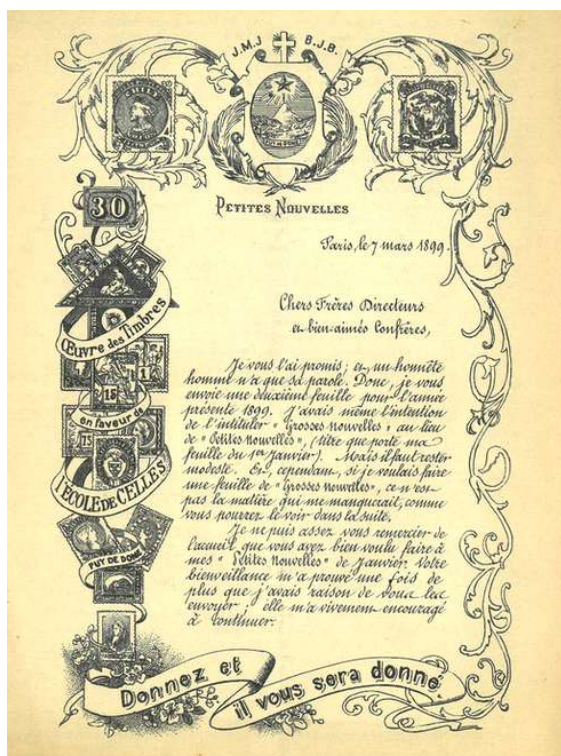 J.M.J B.J.B.
CHILE
PETITES NOUVELLES
30
Paris, le 7 mars 1899.
Chers Frères Directeurs
et bien-aimés Confrères,
Œuvre des Timbres
15
1
en faveur de
75
l'ÉCOLE DE CELLES
PUY DE DOME
Je vous l'ai promis; et, un honnête
homme n'a que sa parole. Donc, je vous
envoie une deuxième feuille pour l'année
présente 1899. J'avais même l'intention
de l'intituler "Grosses nouvelles" au lieu
de "Petites nouvelles", (titre que porte ma
feuille du 1er Janvier). Mais il faut rester
modeste. Et, cependant, si je voulais faire
une feuille de "Grosses nouvelles", ce n'est
pas la matière qui me manquerait, comme
vous pourrez le voir dans la suite.
Je ne puis assez vous remercier de
l'accueil que vous avez bien voulu faire à
mes "Petites Nouvelles" de Janvier. Votre
bienveillance m'a prouvé une fois de
plus que j'avais raison de vous les
envoyer; elle m'a vivement encouragé
à continuer.
Donnez et
il vous sera donné